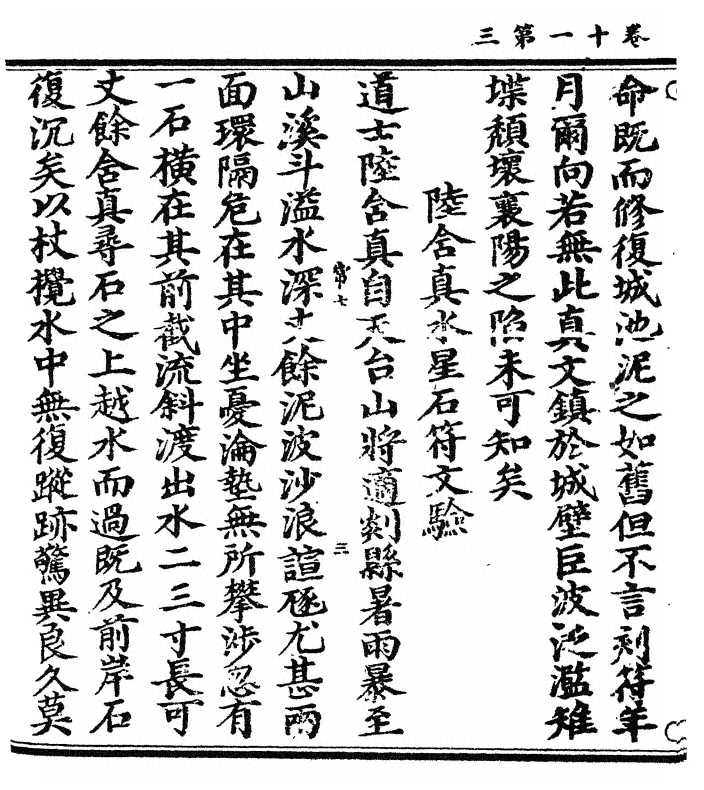 卷十一第三
命既而修復城池泥之如舊但不言刻符年
月爾向若無此真文鎮於城壁巨波泛濫雉
堞頹壞襄陽之險未可知矣
陸含真水星石符文驗
道士陸含真自天台山將適剡縣暑雨暴至
常七
三
山溪斗溢水深丈餘泥波沙浪諠豗尤甚兩
面環隔危在其中坐憂淪墊無所攀涉忽有
一石橫在其前截流斜渡出水二三寸長可
丈餘含真尋石之上越水而過既及前岸石
復沉矣以杖攪水中無復蹤跡驚異良久莫